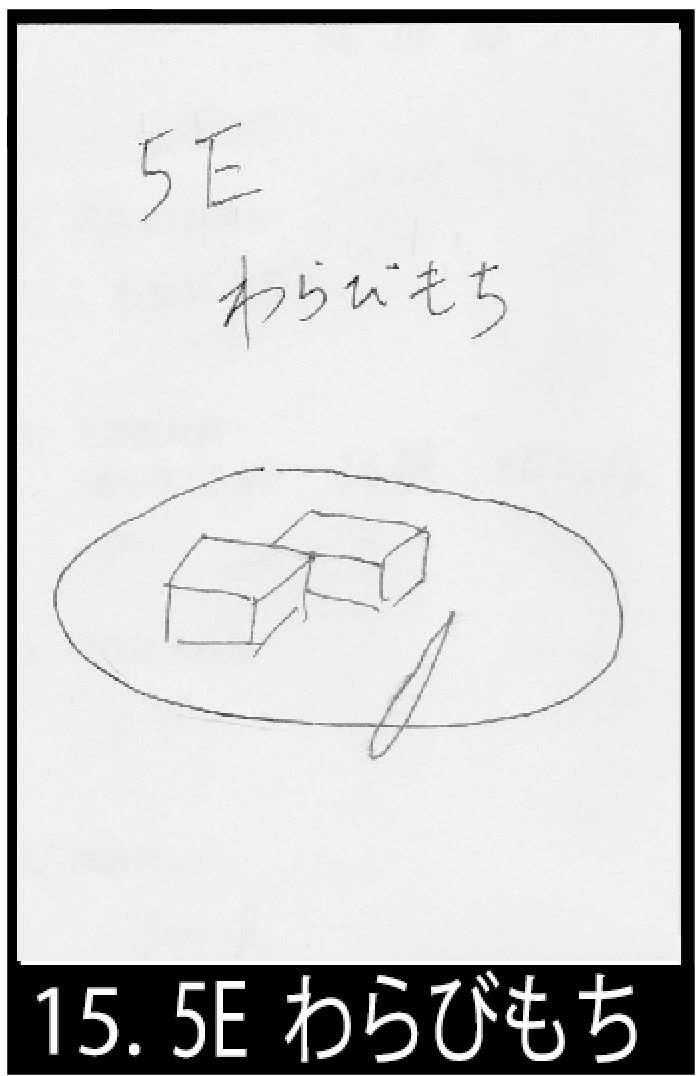 5E
わらびもち
15. 5E わらびもち